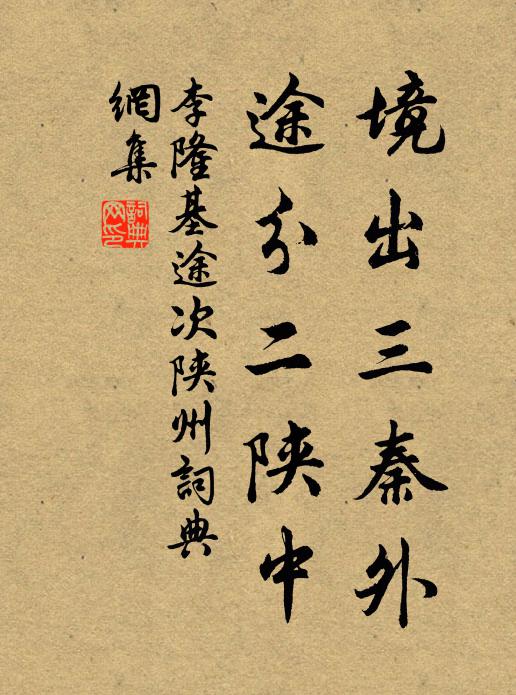 境出三秦外
途分二陝中
李隆基途次陝州詞典
網集
詞典
网印